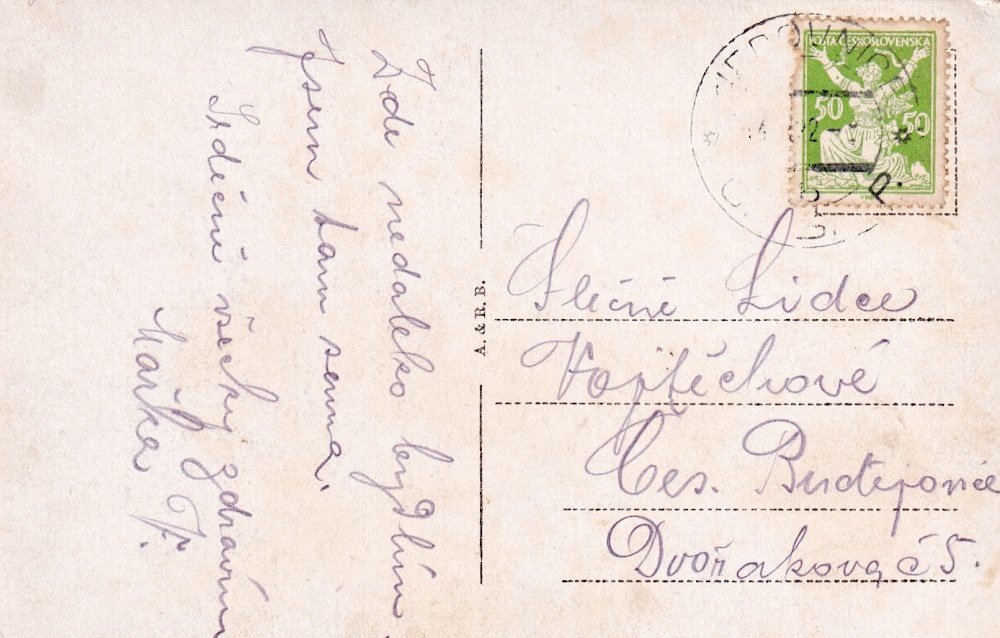 Zde nedaleko bydlím
Jsem tam sama.
Srdečně všecky zdravím
Mařka F.
A. & R. B.
POŠTA ČESKOSLOVENSKÁ
50 50
Slečně Lidce
Vojtěchové
Čes. Budějovice
Dvořakova č 5.